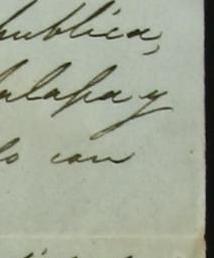 publica,
alapa y
lo con